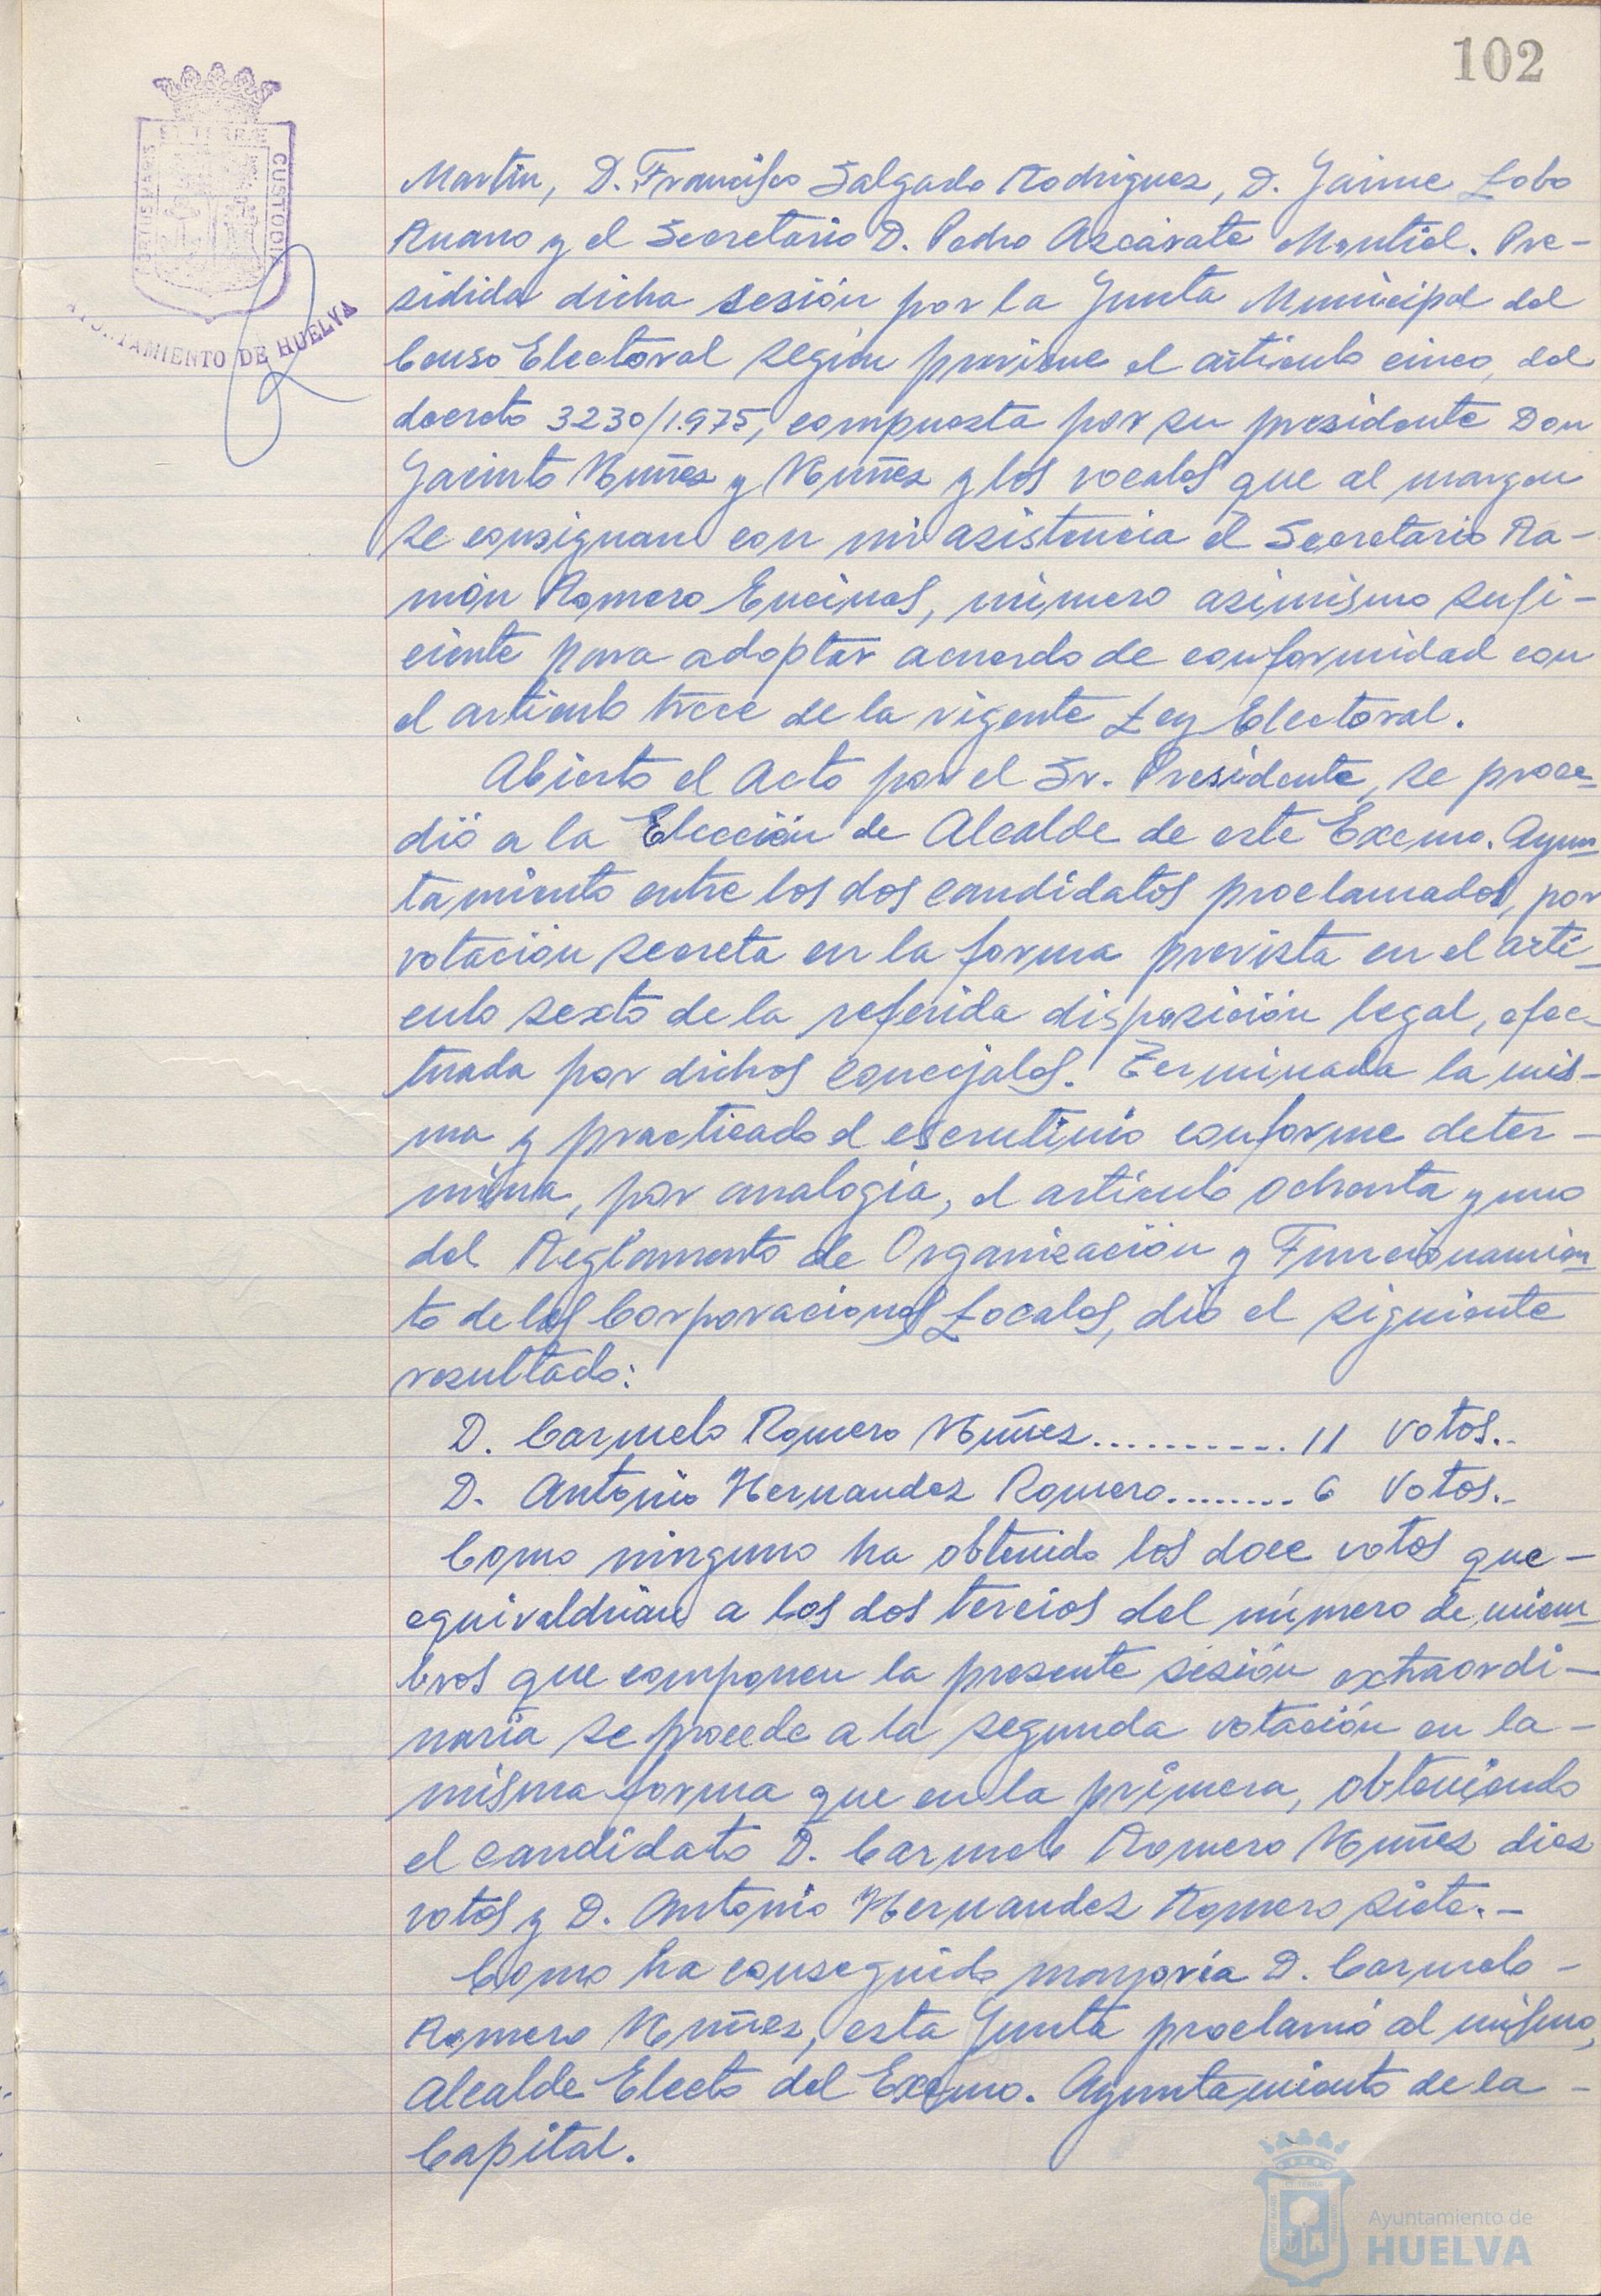 102
PORTUS MARIS
ET TERRÆ
CUSTODIA
AYUNTAMIENTO DE HUELVA
Martin, D. Francisco Salgado Rodriguez, D. Jaime Lobo
Ruano y el Secretario D. Pedro Azcárate Montiel. Pre-
sidida dicha sesión por la Junta Municipal del
Censo Electoral según previene el articulo cinco, del
decreto 3230/1.975, compuesta por su presidente Don
Jacinto Nuñez y Nuñez y los vocales que al margen
se consignan con mi asistencia el Secretario Ra-
món Romero Encinas, número asimismo sufi-
ciente para adoptar acuerdo de conformidad con
el articulo trece de la vigente Ley Electoral.
Abierto el Acto por el Sr. Presidente, se proce-
dió a la Elección de Alcalde de este Excmo. Ayun-
tamiento entre los dos candidatos proclamados, por
votación secreta en la forma prevista en el arti-
culo sexto de la referida disposición legal, efec-
tuada por dichos concejales. Terminada la mis-
ma y practicado el escrutinio conforme deter-
mina, por analogia, el articulo ochenta y uno
del Reglamento de Organización y Funcionamien-
to de las Corporaciones Locales, dio el siguiente
resultado:
D. Carmelo Romero Nuñez........... 11 Votos.-
D. Antonio Hernandez Romero........ 6 Votos.-
Como ninguno ha obtenido los doce votos que-
equivaldrian a los dos tercios del número de miem-
bros que componen la presente sesión extraordi-
naria se procede a la segunda votación en la-
misma forma que en la primera, obteniendo
el candidato D. Carmelo Romero Nuñez diez
votos y D. Antonio Hernandez Romero siete.-
Como ha conseguido mayoría D. Carmelo-
Romero Nuñez, esta Junta proclamó al mismo,
Alcalde Electo del Excmo. Ayuntamiento de la-
Capital.
Ayuntamiento de
HUELVA